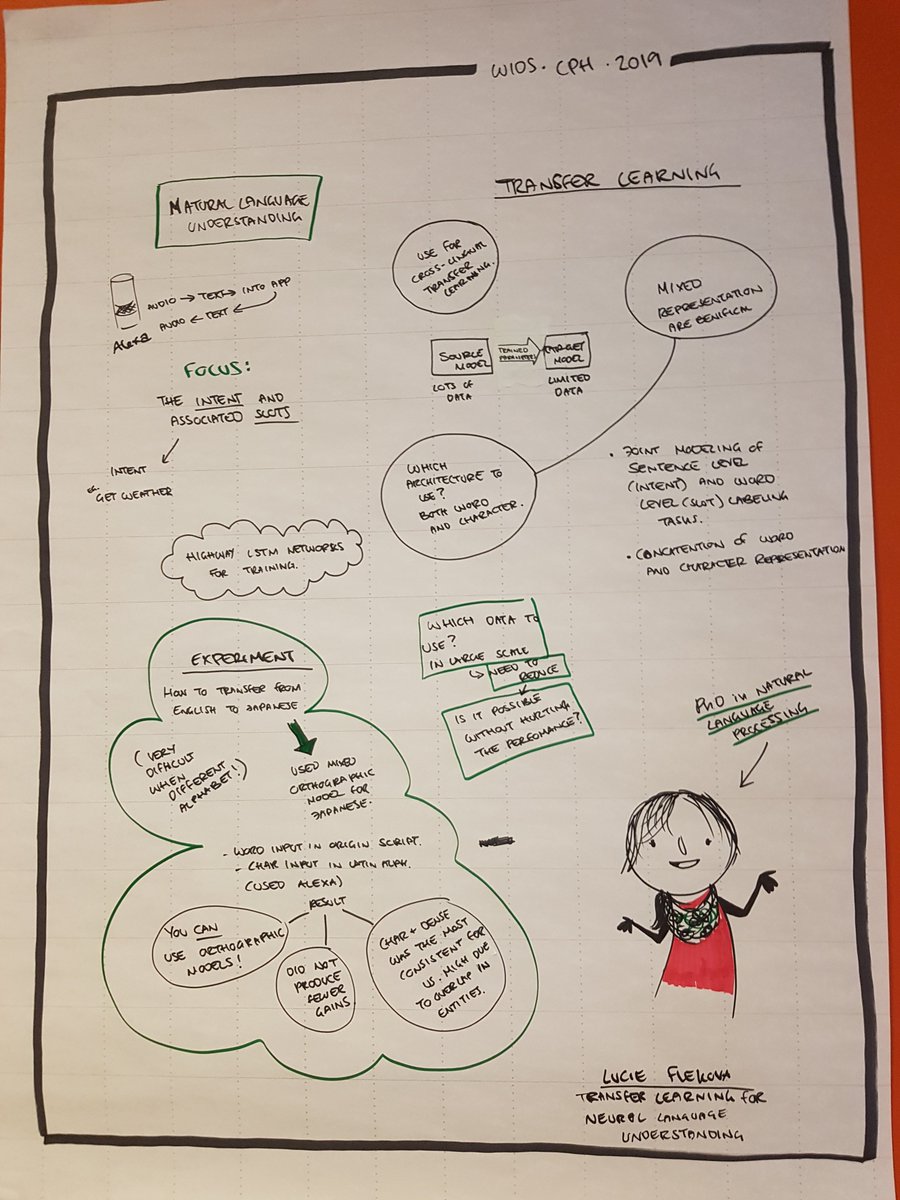 WIDS. CPH. 2019
NATURAL LANGUAGE
UNDERSTANDING
AUDIO → TEXT → INTO APP
AUDIO ← TEXT ←
Alexa
FOCUS:
THE INTENT AND
ASSOCIATED SLOTS
INTENT
eg. GET WEATHER
HIGHWAY LSTM NETWORKS
FOR TRAINING.
TRANSFER LEARNING
USE FOR
CROSS-LINGUAL
TRANSFER
LEARNING.
MIXED
REPRESENTATION
ARE BENIFICAL
SOURCE
MODEL
TRAINED
PARAMETERS
TARGET
MODEL
LOTS OF
DATA
LIMITED
DATA
WHICH
ARCHITECTURE TO
USE?
BOTH WORD
AND CHARACTER.
• JOINT MODELING OF
SENTENCE LEVEL
(INTENT) AND WORD
LEVEL (SLOT) LABELING
TASKS.
• CONCATENTION OF WORD
AND CHARACTER REPRESENTATION
WHICH DATA TO
USE?
IN LARGE SCALE
↳ NEED TO
REDUCE
IS IT POSSIBLE
WITHOUT HURTING
THE PERFOMANCE?
EXPERIMENT
HOW TO TRANSFER FROM
ENGLISH TO JAPANESE
(VERY
DIFFICULT
WHEN
DIFFERENT
ALPHABET!)
USED MIXED
ORTHOGRAPHIC
MODEL FOR
JAPANESE.
- WORD INPUT IN ORIGIN SCRIPT.
- CHAR INPUT IN LATIN ALPH.
(USED ALEXA)
RESULT
YOU CAN
USE ORTHOGRAPHIC
MODELS!
DID NOT
PRODUCE
FEWER
GAINS
CHAR + DENSE
WAS THE MOST
CONSISTENT FOR
US. HIGH DUE
TO OVERLAP IN
ENTITIES.
PhD in NATURAL
LANGUAGE
PROCESSING
LUCIE FLEKOVA
TRANSFER LEARNING FOR
NEURAL LANGUAGE
UNDERSTANDING